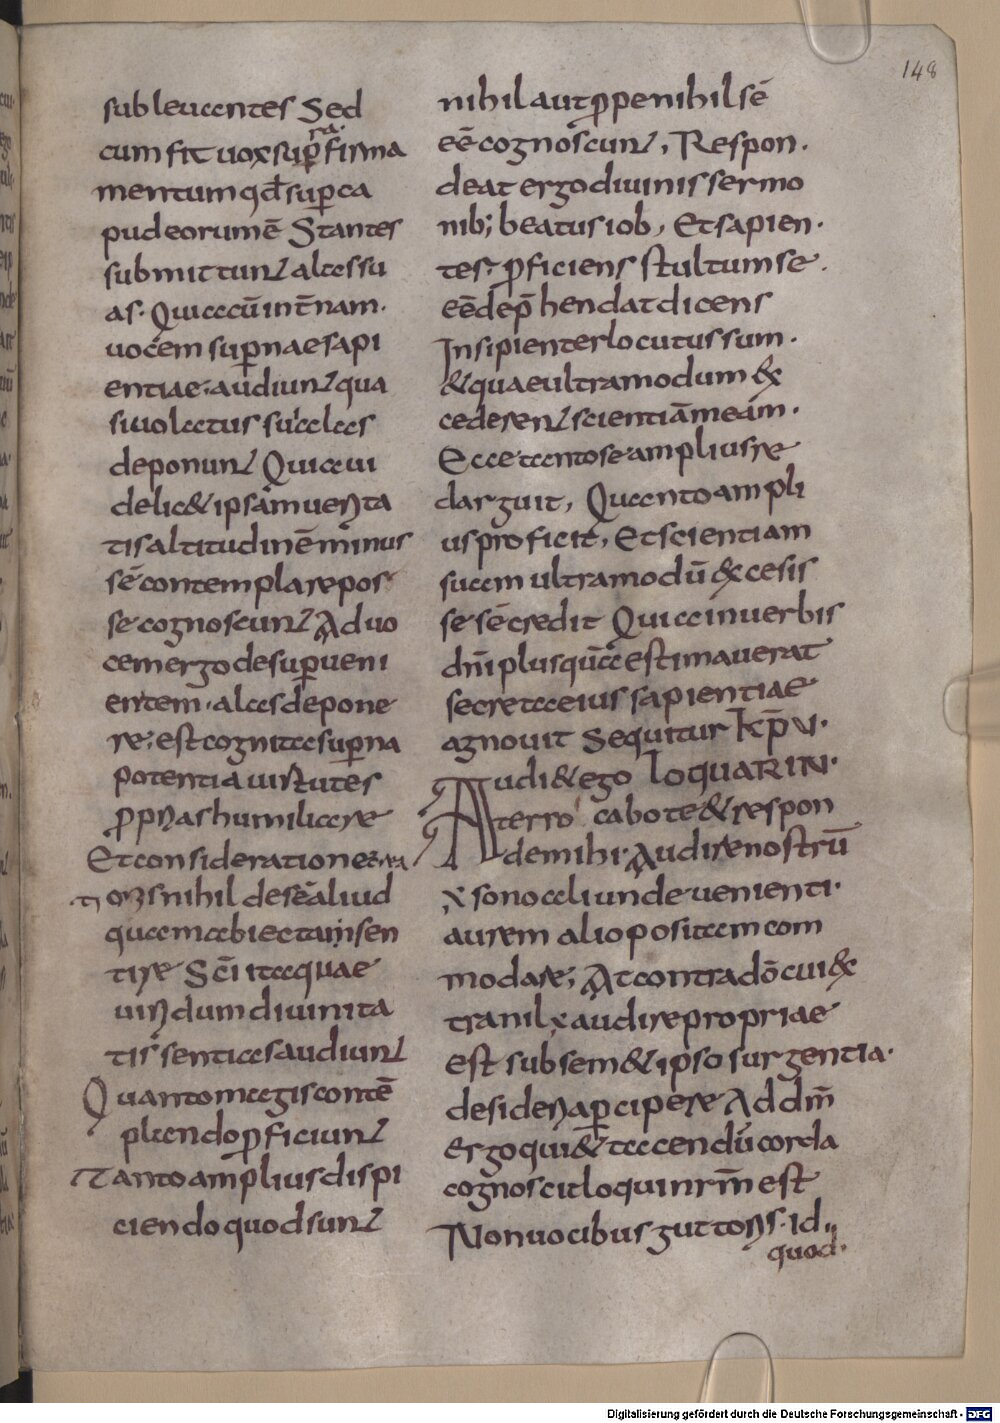 148
subleuantes Sed
cum fit uox supˉ firma
ra.
mentum qđ supˉ ca
pud eorum ē Stantes
submittunt alas su
as. Qui cū intˉnam.
uocem supˉnae sapi
entiae. audiunt qua
si uolatus su alas
deponunt Quia ui
delic& ipsam uerita
tis altitudinē minus
sé contemplare pos
se cognoscunt Ad uo
cem ergo desupˉ ueni
entem. alas depone
re; est cognita supˉna
potentia uirtutes
ꝓprias humiliare
Et consideratione
nihil de sé aliud
quam abiecta insen
tire Sc̄i itaquae
uiri dum diuinita
tis sentias audiunt
Quanto magis contē
plando ꝓficiunt
Tanto amplius dispi
ciendo quod sunt
nihil aut ꝓpe nihil sé
eē cognoscunt, Respon.
deat ergo diuinis sermo
nib; beatus iob, Et sapien.
tes. ꝓficiens stultum se.
eē dep̄hendat dicens
Insipienter locutus sum.
& quae ultra modum &
cederent scientiā meam.
Ecce tanto se amplius re
darguit, Quanto ampli
us proficit, Et scientiam
suam ultra modū &cesis
se sé credit Quia in uerbis
dn̄i plus quā estimauerat
secreta eius sapientiae
agnouit Sequitur kp̄ V.
Audi & ego loquar IN.
terro cabo te & respon
de mihi. Audire nostrū
x sono celi unde uenienti.
aurem alio positam com
modare; At contra dō cui &
tra nil x audire proprie
est sub sem&ipso surgentia.
desideria pˉcipere Ad dm̄
ergo qui & tacendū corda
cognoscit loqui nr̄m est
Non uocibus gutturis. Id
quod.
Digitalisierung gefördert durch die Deutsche Forschungsgemeinschaft - DFG